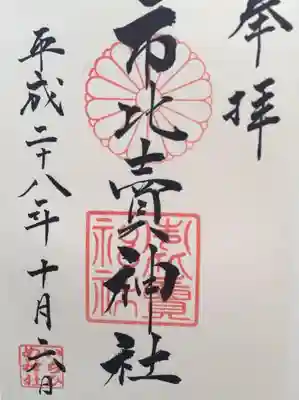 奉拝
市比賣神社
平成二十八年十月六日